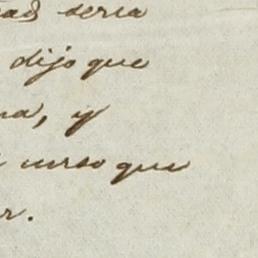 seria
dijo que
na, y
curso que
r.